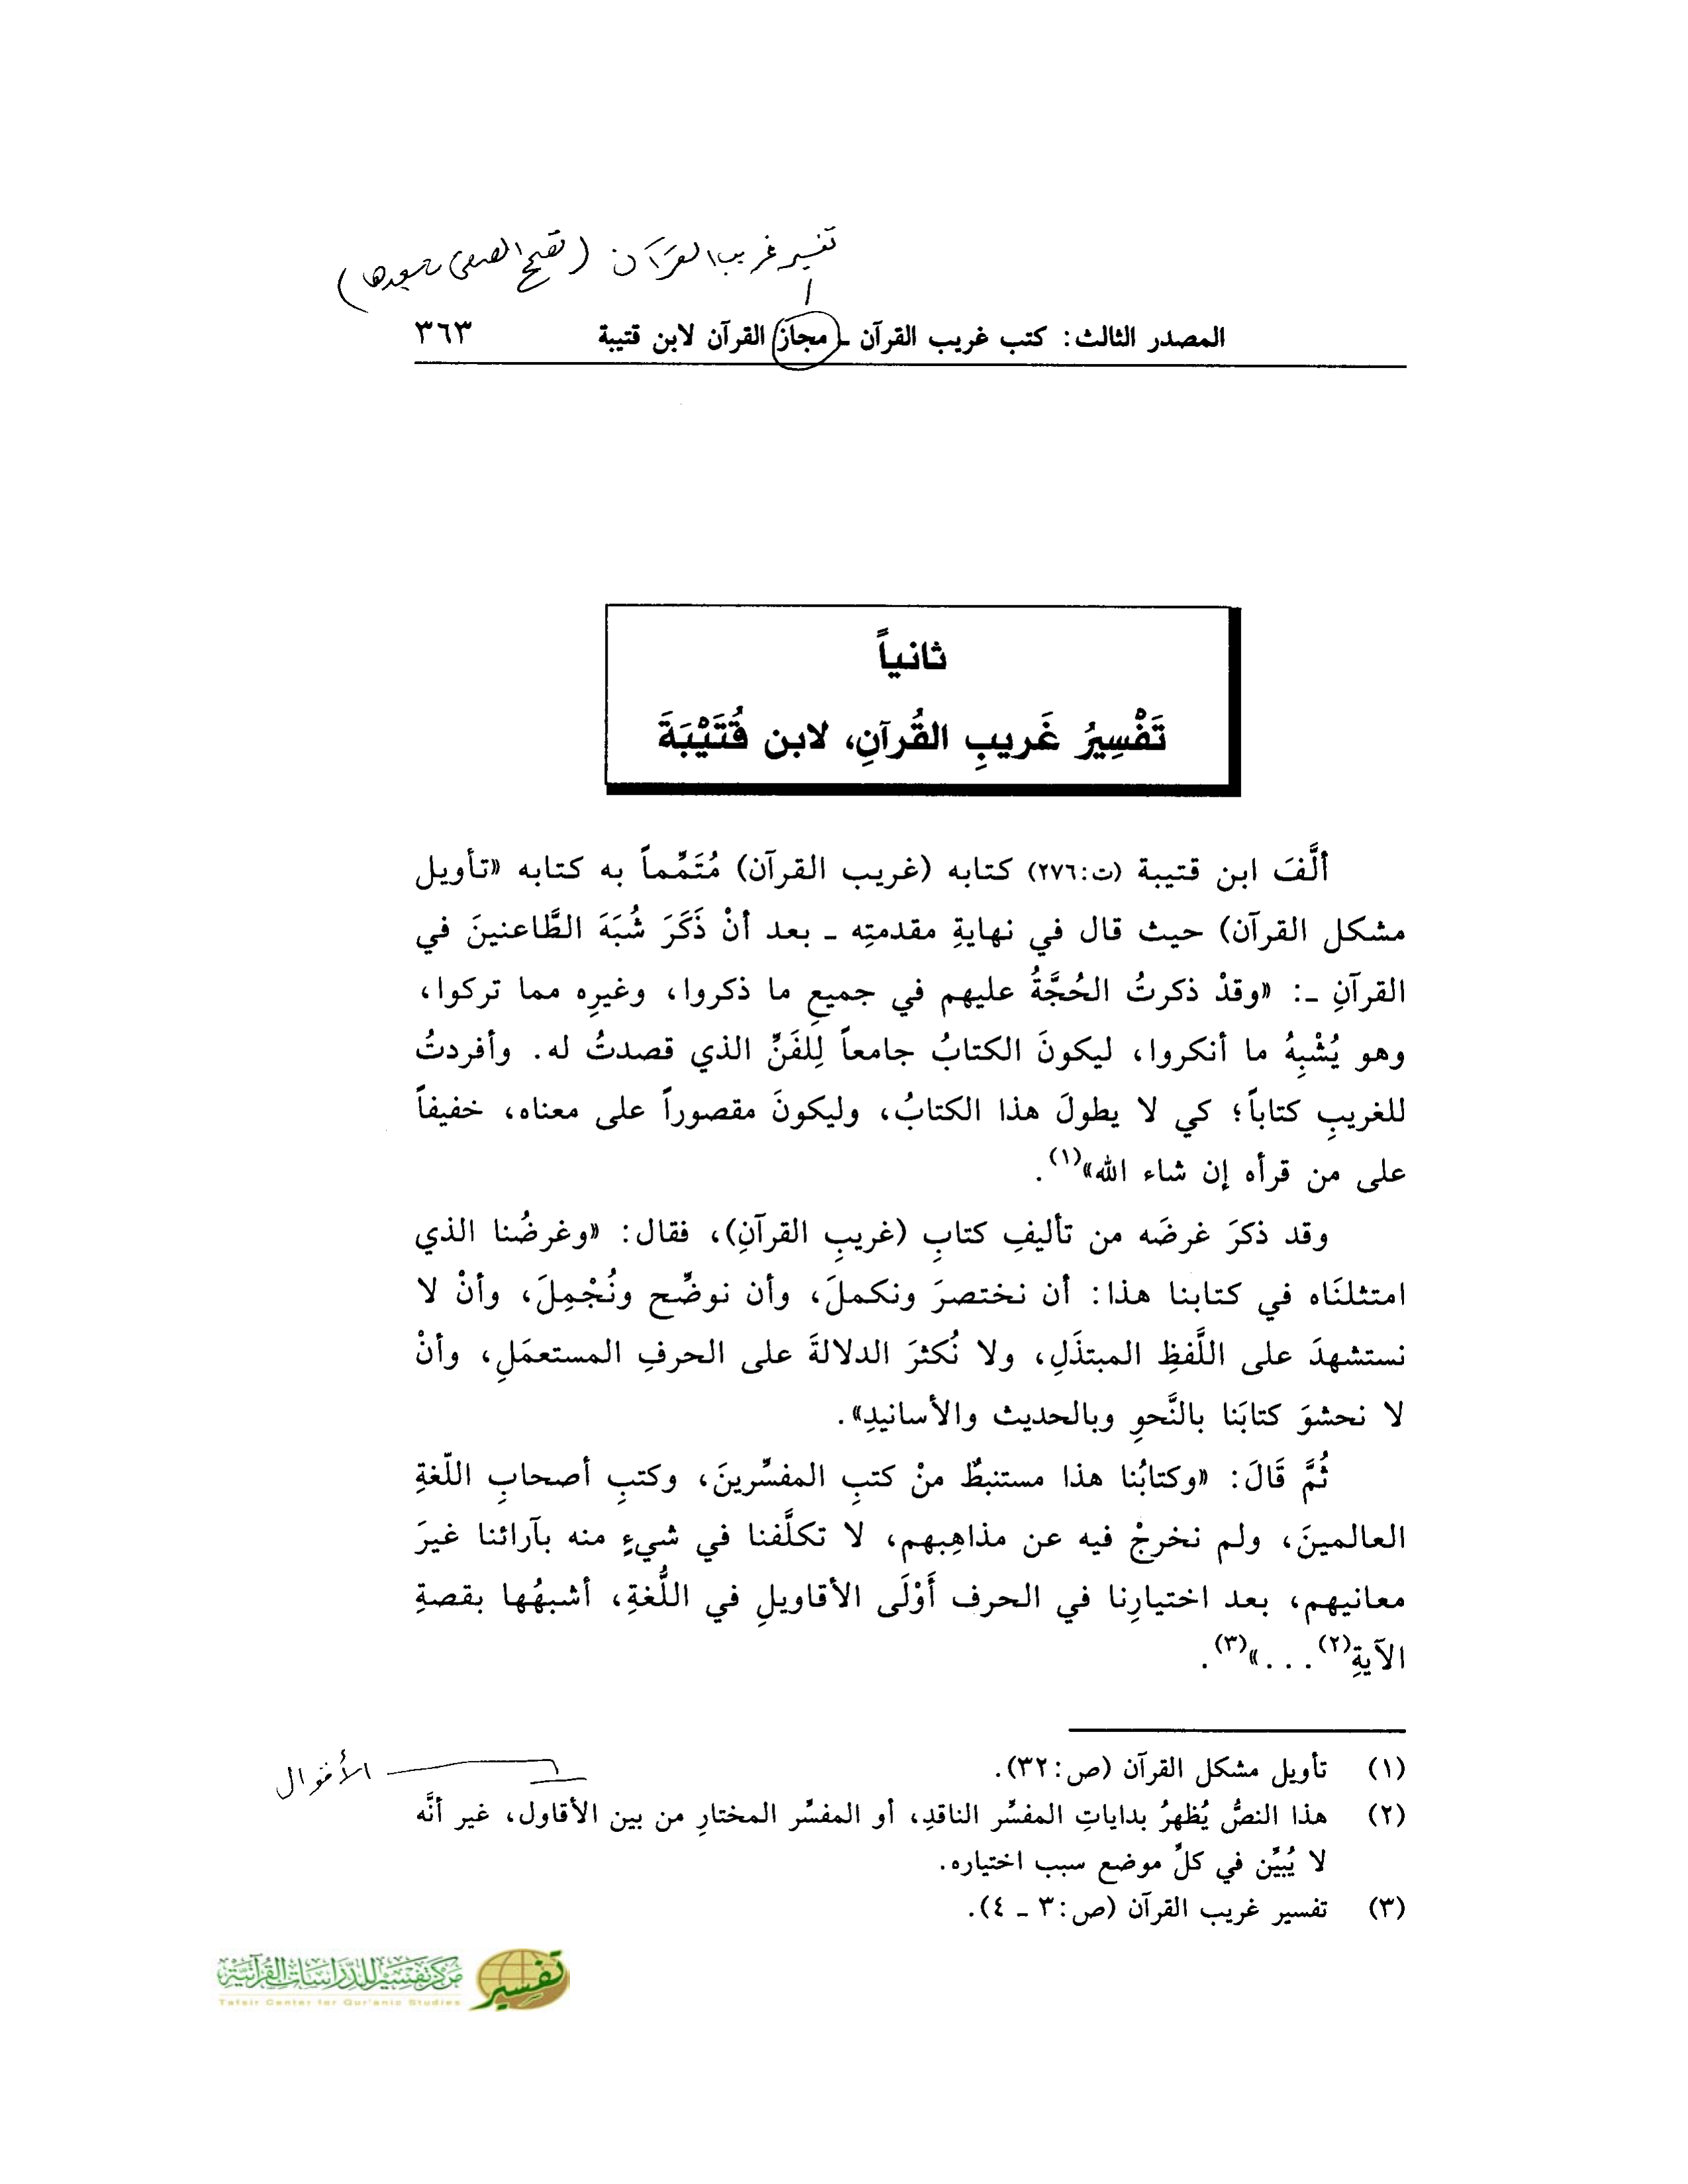 تفسير غريب القرآن (تصحح الصفحة وما بعدها)
المصدر الثالث: كتب غريب القرآن ـ مجاز القرآن لابن قتيبة ٣٦٣
ثانياً
تَفْسِيرُ غَريبِ القُرآنِ، لابن قُتَيْبَةَ
ألَّفَ ابن قتيبة (ت:٢٧٦) كتابه (غريب القرآن) مُتَمِّماً به كتابه «تأويل
مشكل القرآن) حيث قال في نهايةِ مقدمتِه ـ بعد أنْ ذَكَرَ شُبَهَ الطَّاعنينَ في
القرآنِ ـ: «وقدْ ذكرتُ الحُجَّةُ عليهم في جميعِ ما ذكروا، وغيرِه مما تركوا،
وهو يُشْبِهُ ما أنكروا، ليكونَ الكتابُ جامعاً لِلفَنِّ الذي قصدتُ له. وأفردتُ
للغريبِ كتاباً؛ كي لا يطولَ هذا الكتابُ، وليكونَ مقصوراً على معناه، خفيفاً
على من قرأه إن شاء الله»(١).
وقد ذكرَ غرضَه من تأليفِ كتابِ (غريبِ القرآنِ)، فقال: «وغرضُنا الذي
امتثلنَاه في كتابنا هذا: أن نختصرَ ونكملَ، وأن نوضِّح ونُجْمِلَ، وأنْ لا
نستشهدَ على اللَّفظِ المبتذَلِ، ولا نُكثرَ الدلالةَ على الحرفِ المستعمَلِ، وأنْ
لا نحشوَ كتابَنا بالنَّحوِ وبالحديث والأسانيدِ».
ثُمَّ قَالَ: «وكتابُنا هذا مستنبطٌ منْ كتبِ المفسِّرينَ، وكتبِ أصحابِ اللّغةِ
العالمينَ، ولم نخرجْ فيه عن مذاهِبهم، لا تكلَّفنا في شيءٍ منه بآرائنا غيرَ
معانيهم، بعد اختيارِنا في الحرف أَوْلَى الأقاويلِ في اللُّغةِ، أشبهُها بقصةِ
الآيةِ(٢)...»(٣).
(١) تأويل مشكل القرآن (ص:٣٢).
الأقوال
(٢) هذا النصُّ يُظهرُ بداياتِ المفسِّر الناقدِ، أو المفسِّر المختارِ من بين الأقاول، غير أنَّه
لا يُبيِّن في كلِّ موضع سبب اختياره.
(٣) تفسير غريب القرآن (ص:٣ ـ ٤).
تفسير
مركز تفسير للدراسات القرآنية
Tafsir Center for Qur'anic Studies